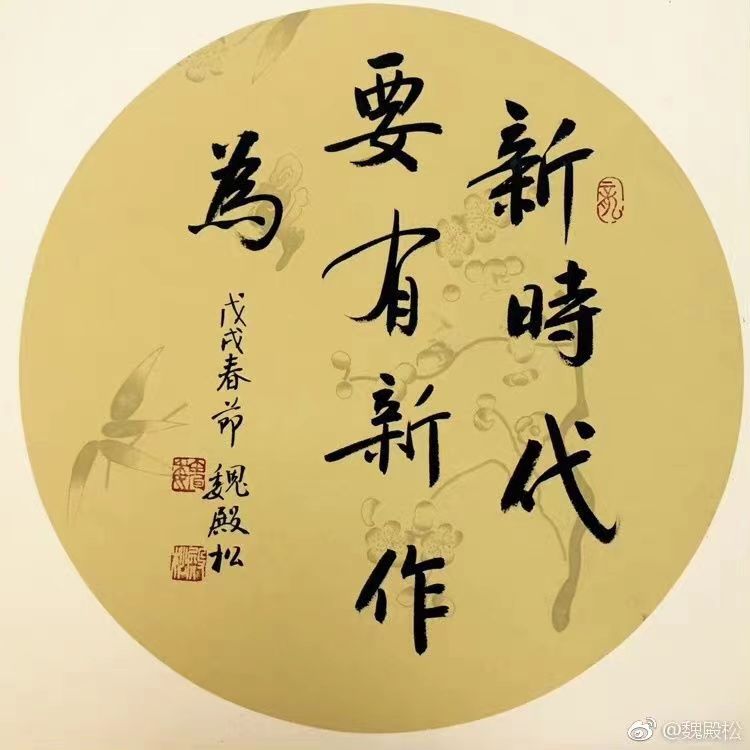 新時代
要有新作
為
戊戌春節
魏殿松
@魏殿松